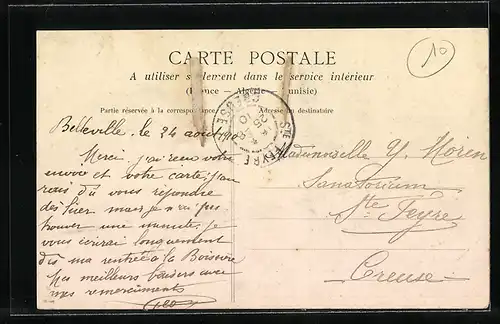 CARTE POSTALE
A utiliser seulement dans le service intérieur
(France — Algérie — Tunisie)
Partie réservée à la correspondance
Adresse du destinataire
10
STE FEYRE
CREUSE
25
10
Belleville, le 24 août 10
Merci j'ai reçu votre
envoi et votre carte, j'au
rais dû vous répondre
dès hier mais je n'ai pas
trouver une minute, je
vous écrirai longuement
dès ma rentrée à la Boissière
Mes meilleurs baisers avec
mes remerciments
Mademoiselle Y. Moren
Sanatorium
Ste Feyre
Creuse